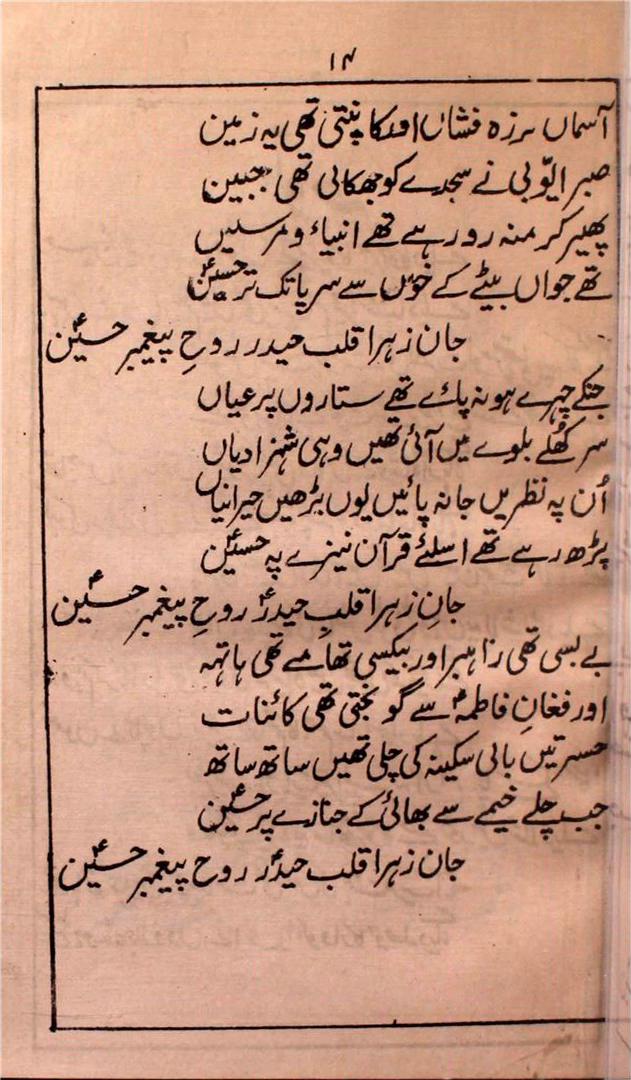 ۱۴
آسماں لرزہ فشاں اور کانپتی تھی یہ زمین
صبرِ ایّوبی نے سجدے کو جھکالی تھی جبین
پھیر کر منہ رو رہے تھے انبیاء و مرسلیں
تھے جواں بیٹے کے خوں سے سر پا تک تر حسینؑ
جان زہرا قلب حیدر روحِ پیغمبر حسینؑ
جنکے چہرے ہو نہ پائے تھے ستاروں پر عیاں
سر کھُلے بلوے میں آئی تھیں وہی شہزادیاں
اُن پہ نظریں جا نہ پائیں یوں بڑھیں حیرانیاں
پڑھ رہے تھے اسلئے قرآن نیزے پہ حسینؑ
جانِ زہرا قلبِ حیدرؑ روحِ پیغمبر حسینؑ
بے بسی تھی راہبر اور بیکسی تھامے تھی ہاتہہ
اور فغانِ فاطمہؑ سے گونجتی تھی کائنات
حسرتیں بالی سکینہ کی چلی تھیں ساتھ ساتھ
جب چلے خیمے سے بھائی کے جنازے پر حسینؑ
جان زہرا قلب حیدرؑ روح پیغمبر حسینؑ